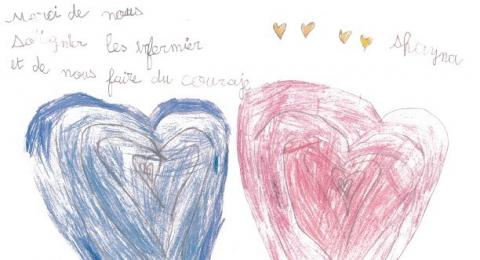 Merci de nous
Soligner les infermier
et de nous faire du couraje
Shayna